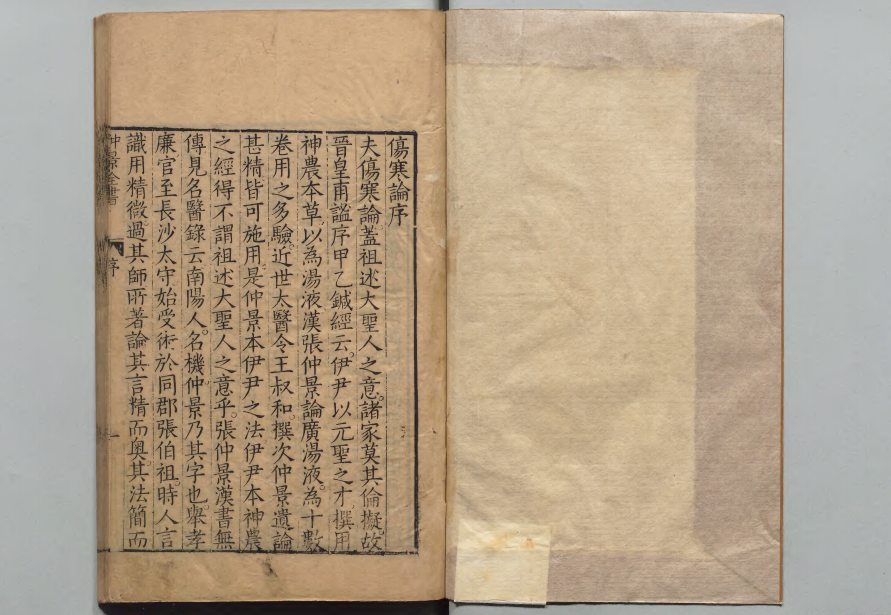 傷寒論序
夫傷寒論蓋祖述大聖人之意。諸家莫其倫擬。故
晉皇甫謐序甲乙鍼經云。伊尹以元聖之才。撰用
神農本草。以為湯液。漢張仲景論廣湯液。為十數
卷。用之多驗。近世太醫令王叔和。撰次仲景遺論
甚精。皆可施用。是仲景本伊尹之法。伊尹本神農
之經。得不謂祖述大聖人之意乎。張仲景漢書無
傳。見名醫錄云。南陽人。名機。仲景乃其字也。舉孝
廉。官至長沙太守。始受術於同郡張伯祖。時人言
識用精微過其師。所著論。其言精而奧。其法簡而
仲景全書
序
一